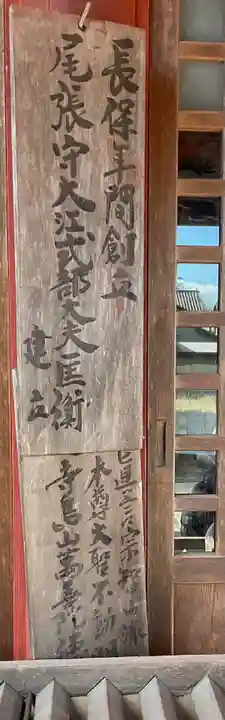 長保年間創立
尾張守大江式部大夫匡衡
建立
真言宗智山派
本尊大聖不動
寺島山萬